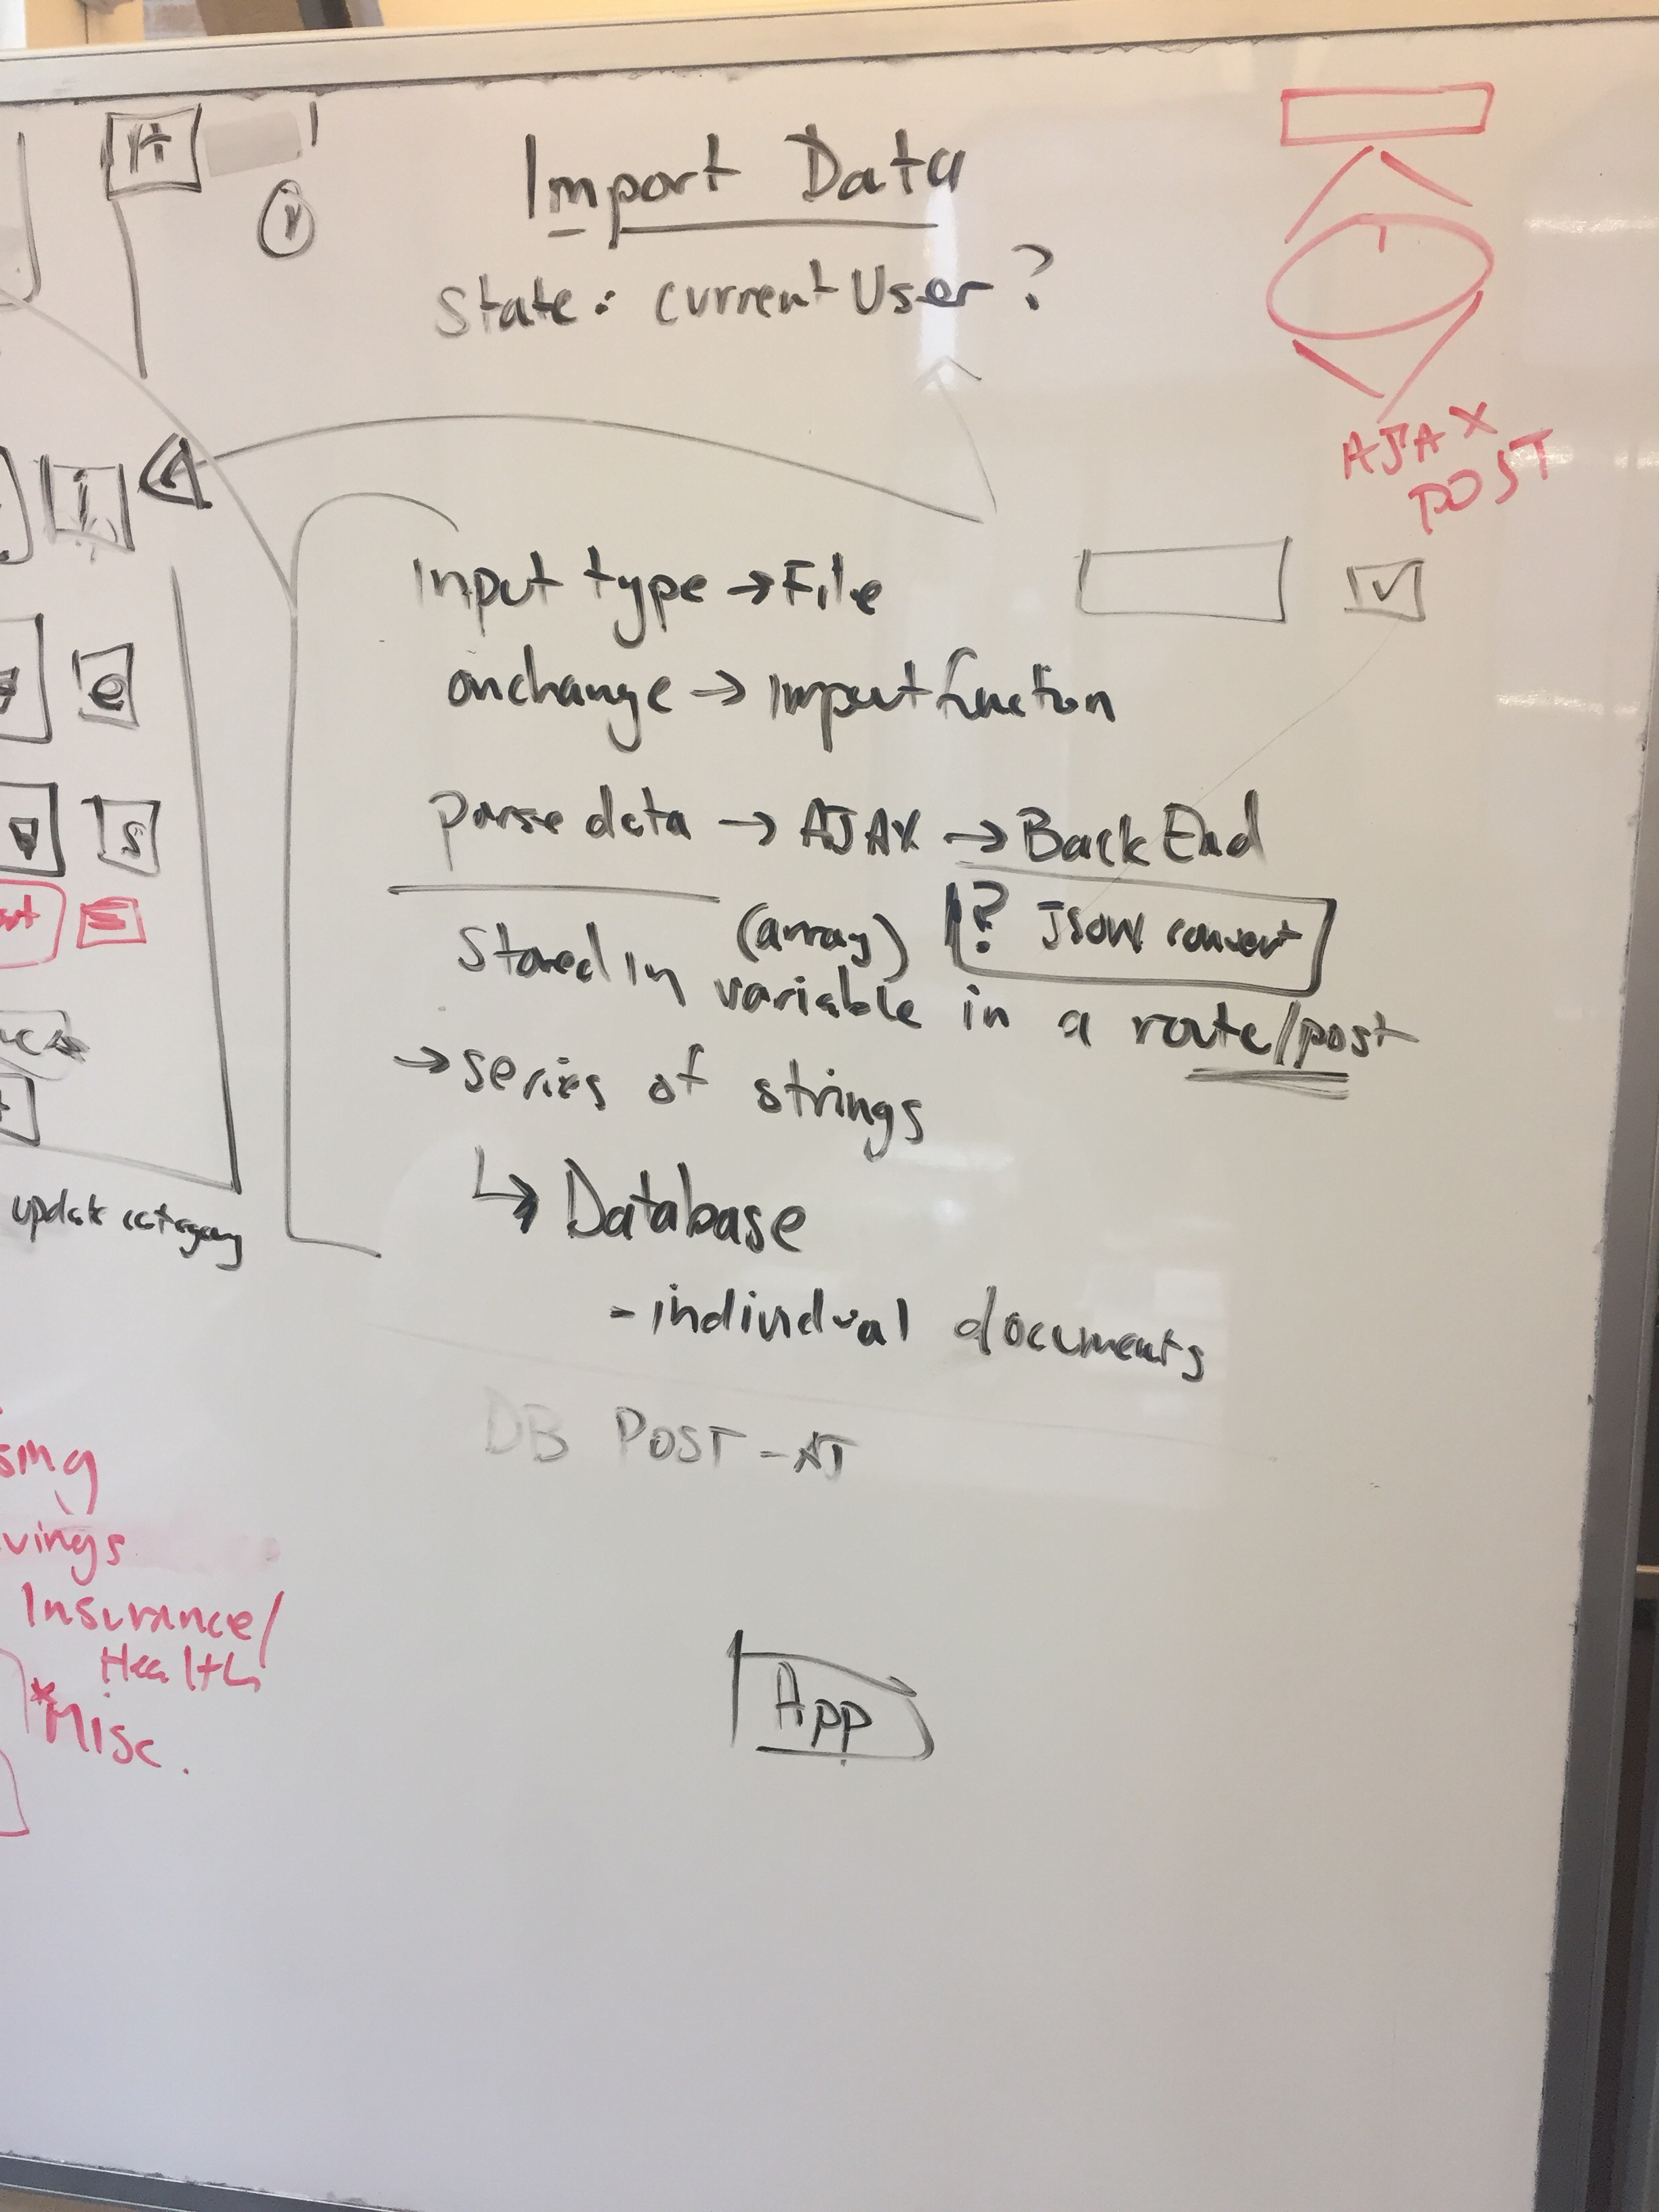 Import Data
State: currentUser?
AJAX
POST
i
Input type → File
onchange → Import function
e
parse data → AJAX → Back End
S
(array) ? JSON convert
Stored in variable in a route/post
→ series of strings
↳ Database
update category
- individual documents
DB POST -
Insurance/
Health
*Misc.
App